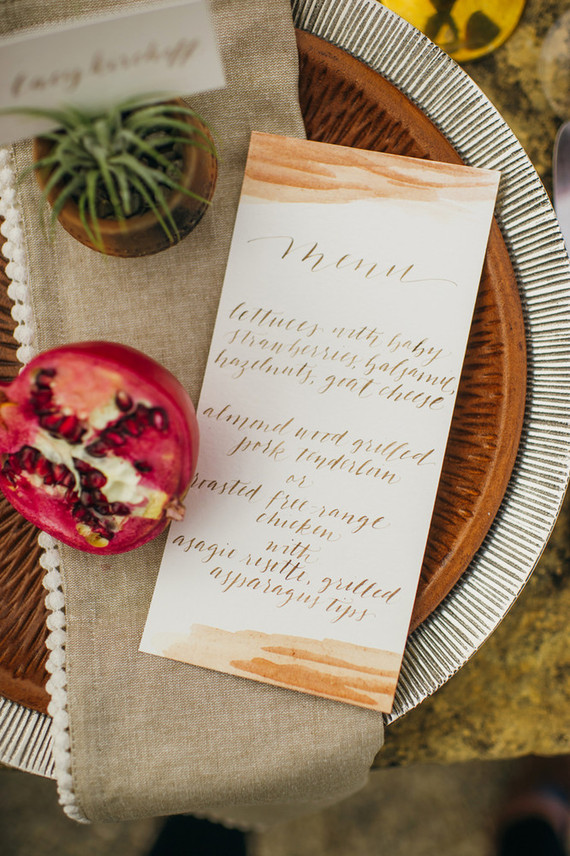 menu
lettuces with baby
strawberries, balsamic,
hazelnuts, goat cheese
almond wood grilled
pork tenderloin
or
roasted free-range
chicken
with
asagio risotto, grilled
asparagus tips